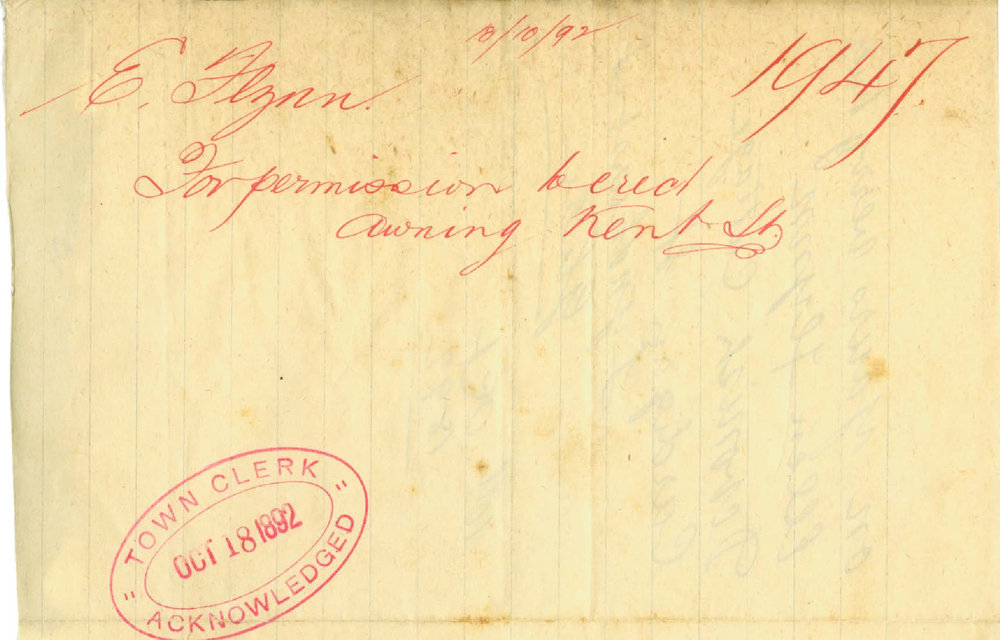 8/10/92
E. Flynn. 1947
For permission to erect
awning Kent St.
TOWN CLERK
OCT 18 1892
" ACKNOWLEDGED "